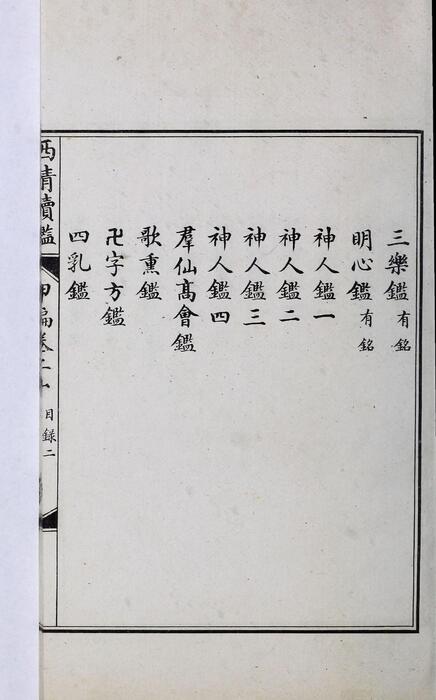 三樂鑑有銘
明心鑑有銘
神人鑑一
神人鑑二
神人鑑三
神人鑑四
羣仙髙會鑑
歌熏鑑
卍字方鑑
四乳鑑
西清續鑑
甲編卷二十
目錄二